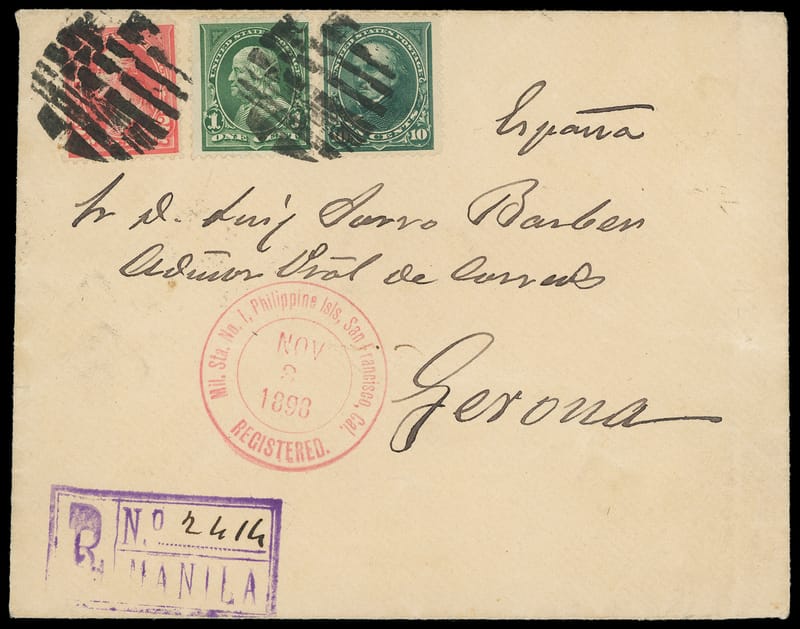 UNITED STATES POSTAGE
1 ONE CENT
UNITED STATES POSTAGE
CENTS 10
España
Sr D. Luis Sarro Barber
Admor Pral de Correos
Mil. Sta. No. 1, Philippine Isls, San Francisco, Cal.
NOV
1898
REGISTERED.
Gerona
R
No. 2414
MANILA